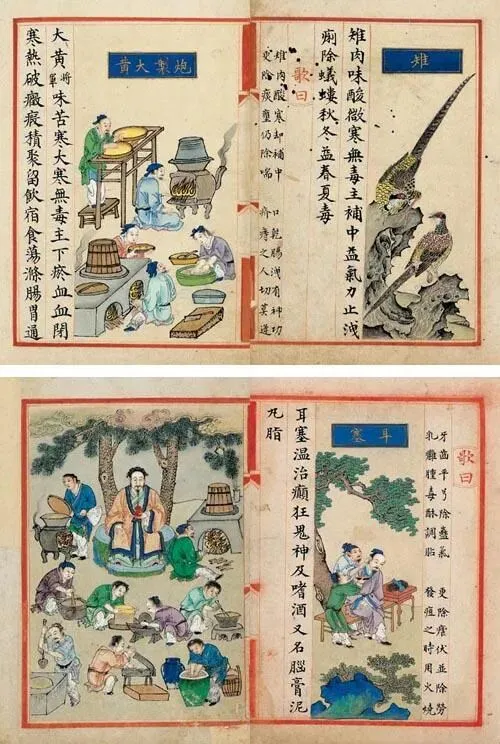 雉
雉肉味酸微寒無毒主補中益氣力止洩
痢除蟻螻秋冬益春夏毒
歌曰
雉肉酸寒却補中 口乾腸洩有神功
更除痰壅仍除喘 之人切莫逢
炮製大黃
大黃將軍味苦寒大寒無毒主下瘀血血閉
寒熱破癥瘕積聚留飲宿食蕩滌腸胃通
歌曰
牙齒平兮除蠱氣 更除瘧伏並除勞
乳癰腫毒酥調脂 發痘之時用火燒
耳塞
耳塞溫治癲狂鬼神及嗜酒又名腦膏泥
丸脂